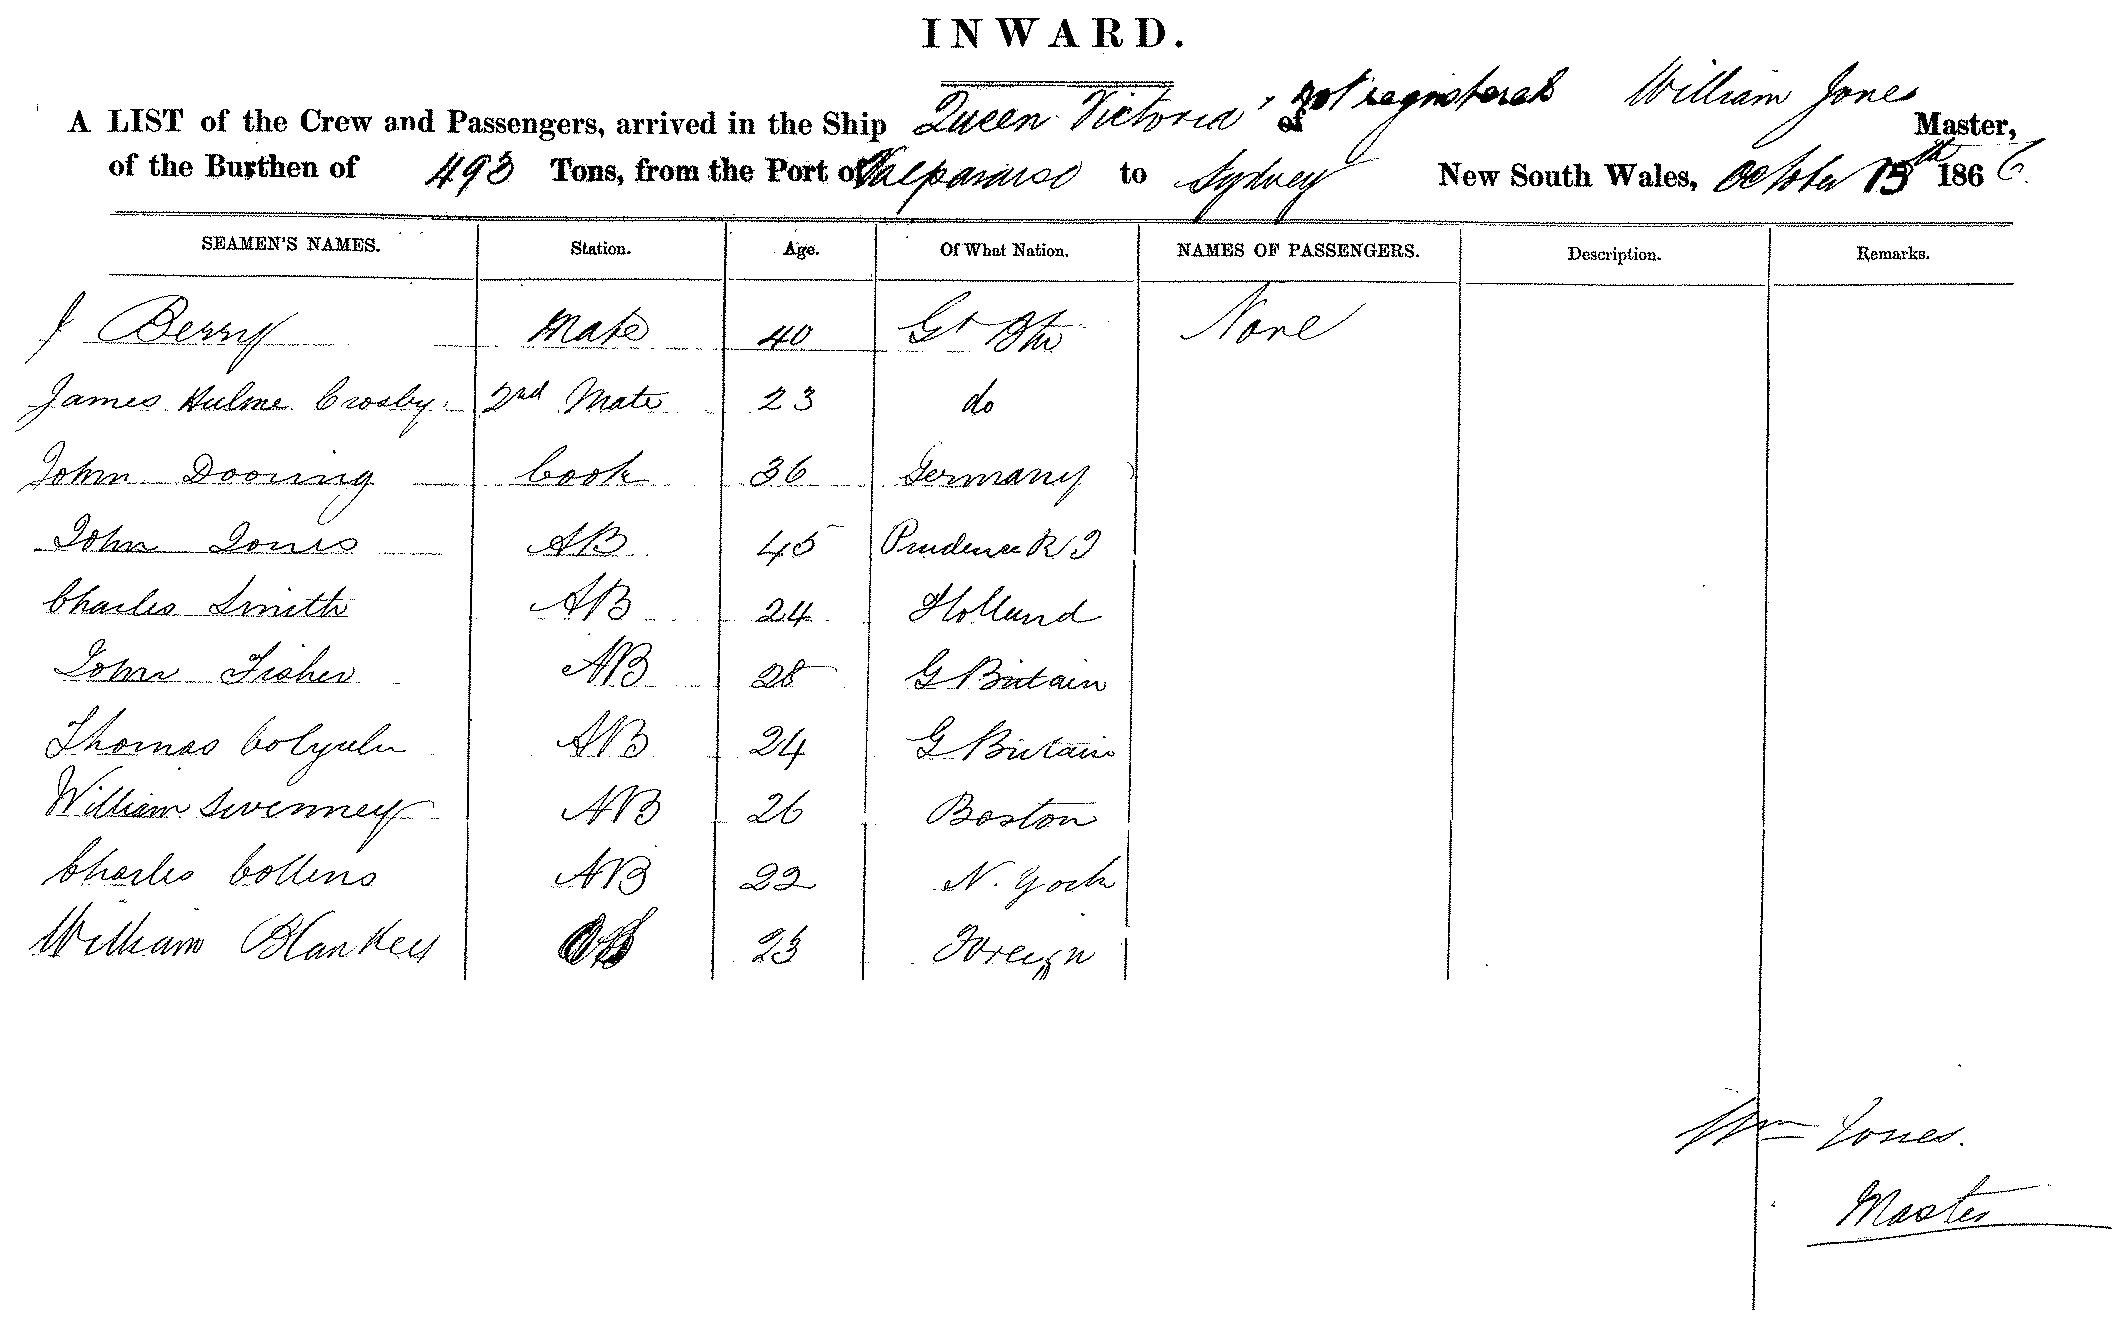 INWARD.
A LIST of the Crew and Passengers, arrived in the Ship Queen Victoria of not registered William Jones Master,
of the Burthen of 493 Tons, from the Port of Valparaiso to Sydney New South Wales, October 15th 1866
SEAMEN'S NAMES. Station. Age. Of What Nation. NAMES OF PASSENGERS. Description. Remarks.
J Berry Mate 40 Gt Btn None
James Hulme Crosby 2nd Mate 23 do
John Dooring Cook 36 Germany
John Jones AB 45 Prudence R I
Charles Smith AB 24 Holland
John Fisher AB 28 G Britain
Thomas AB 24 G Britain
William Swenney AB 26 Boston
Charles Collens AB 22 N. York
William Blankett 23 Foreign
Wm Jones.
Master